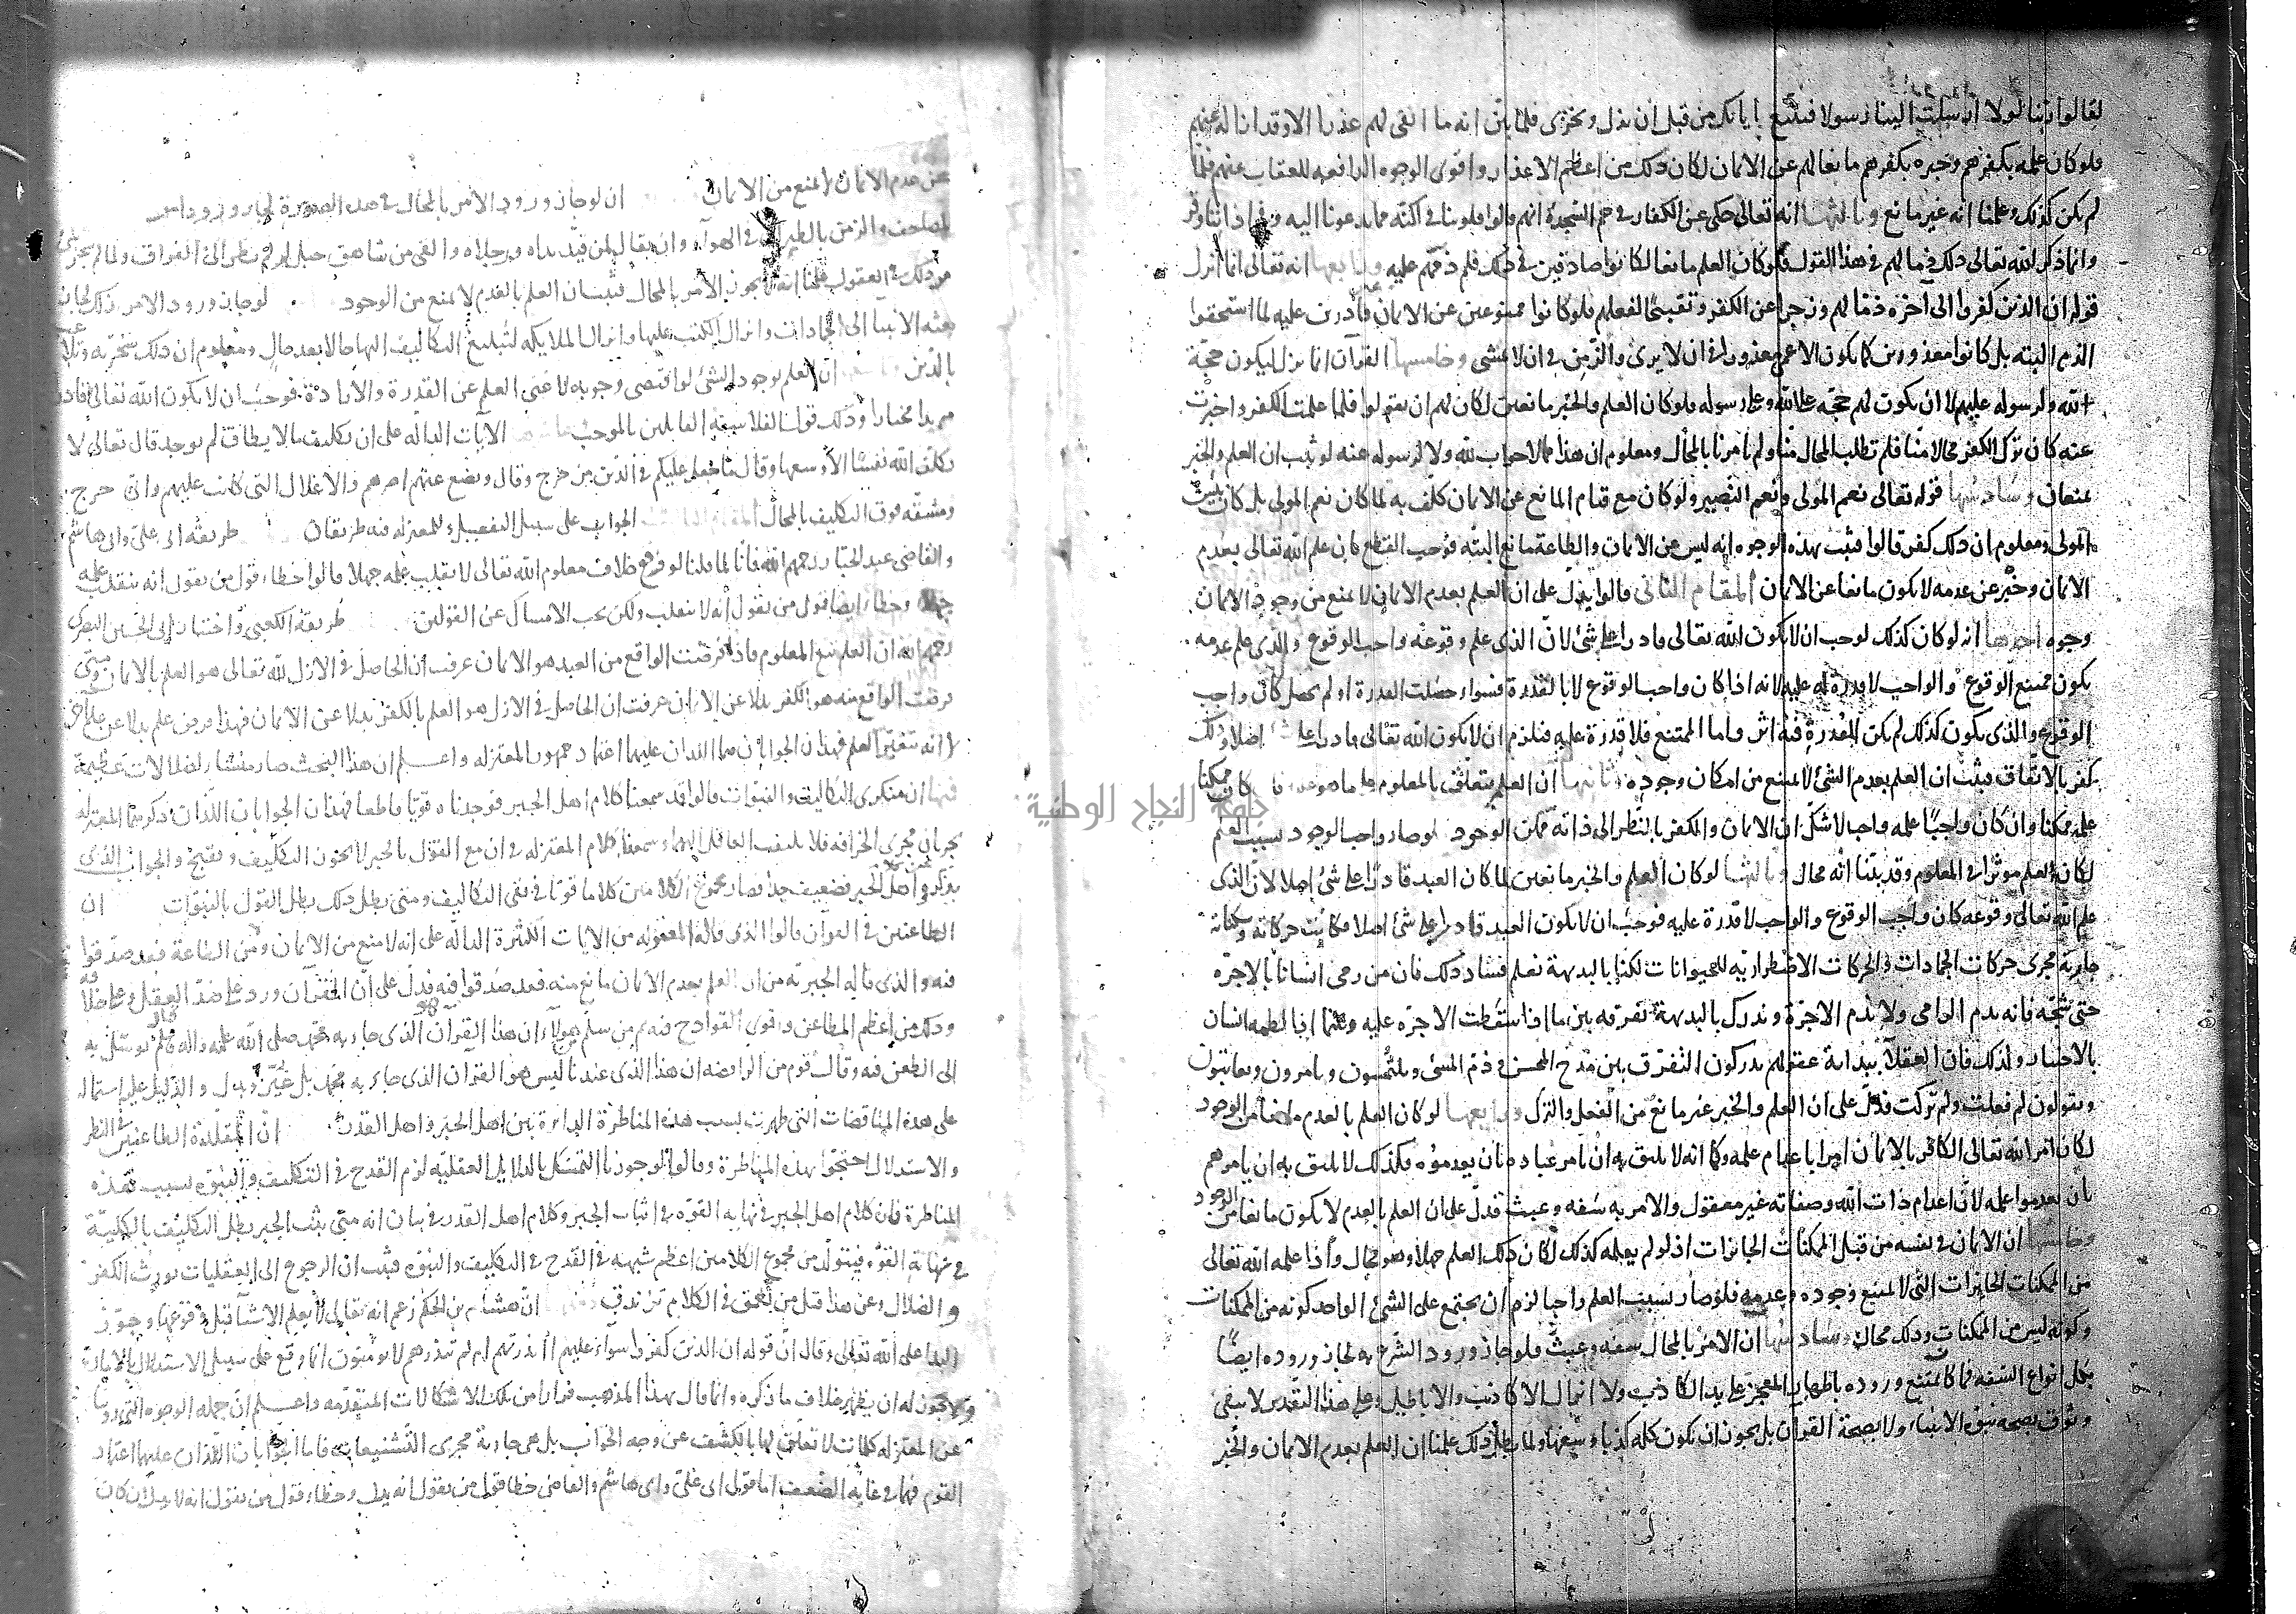 لقالوا ربنا لولا ارسلت الينا رسولا فنتبع اياتك من قبل ان نذل ونخزى فلما بين انه ما ابقى لهم عذرا الا وقد ازاله عنهم
فلو كان علمه بكفرهم وخبره بكفرهم مانعا لهم عن الايمان لكان ذلك من اعظم الاعذار واقوى الوجوه الدافعه للعقاب عنهم فلما
لم يكن كذلك وعلمنا انه غير مانع وثالثها انه تعالى حكى عن الكفار في حم السجدة انهم قالوا قلوبنا في اكنة مما يدعونا اليه وفي اذاننا وقر
وانما ذكر الله تعالى ذلك ذما لهم في هذا القول فلو كان العلم مانعا لكانوا صادقين في ذلك فلم ذمهم عليه ورابعها انه تعالى انما انزل
قوله ان الذين كفروا الى اخره ذما لهم وزجرا عن الكفر وتقبيحا لفعلهم فلو كانوا ممنوعين عن الايمان غير قادرين عليه لما استحقوا
الذم البته بل كانوا معذورين كما يكون الاعمى معذورا في ان لا يرى والزمن في ان لا يمشى وخامسها القرآن انما نزل ليكون حجة
لله ولرسوله عليهم لا ان يكون لهم حجة على الله وعلى رسوله فلو كان العلم والخبر مانعين لكان لهم ان يقولوا فلما علمت الكفر واخبرت
عنه كان ترك الكفر محالا منا فلم تطلب المحال منا ولم تامرنا بالمحال ومعلوم ان هذا مما لا جواب لله ولا لرسوله عنه لو ثبت ان العلم والخبر
يمنعان وسادسها قوله تعالى نعم المولى ونعم النصير ولو كان مع قيام المانع عن الايمان كلف به لما كان نعم المولى بل كان بئس
المولى ومعلوم ان ذلك كفر قالوا فثبت بهذه الوجوه انه ليس عن الايمان والطاعة مانع البته فوجب القطع بان علم الله تعالى بعدم
الايمان وخبره عن عدمه لا يكون مانعا عن الايمان المقام الثانى قالوا يدل على ان العلم بعدم الايمان لا يمنع من وجود الايمان
وجوه احدها انه لو كان كذلك لوجب ان لا يكون الله تعالى قادرا على شئ لان الذى علم وقوعه واجب الوقوع والذى علم عدمه
يكون ممتنع الوقوع والواجب لا قدرة له عليه لانه اذا كان واجب الوقوع لا بالقدرة فسواء حصلت القدرة او لم يحصل كان واجب
الوقوع والذى يكون كذلك لم يكن للقدرة فيه اثر واما الممتنع فلا قدرة عليه فيلزم ان لا يكون الله تعالى قادرا على شئ اصلا وذلك
كفر بالاتفاق فثبت ان العلم بعدم الشئ لا يمنع من امكان وجوده وثانيها ان العلم يتعلق بالمعلوم على ما هو عليه فان كان ممكنا
علمه ممكنا وان كان واجبا علمه واجبا لا شك ان الايمان والكفر بالنظر الى ذاته ممكن الوجود لو صار واجب الوجود بسبب العلم
لكان العلم موثرا في المعلوم وقد بينا انه محال وثالثها لو كان العلم والخبر مانعين لما كان العبد قادرا على شئ اصلا لان الذى
علم الله تعالى وقوعه كان واجب الوقوع والواجب لا قدرة عليه فوجب ان لا يكون العبد قادرا على شئ اصلا فكانت حركاته وسكناته
جارية مجرى حركات الجمادات والحركات الاضطراريه للحيوانات لكنا بالبديهة نعلم فساد ذلك فان من رمى انسانا بالاجرة
حتى شجه فانه يذم الرامى ولا يذم الاجرة وندرك بالبديهة تفرقة بين ما اذا سقطت الاجره عليه وبين ما اذا لطمه انسان
بالاختيار ولذلك فان العقلاء ببداية عقولهم يدركون التفرق بين مدح المحسن وذم المسئ ويلتمسون ويامرون ويعاتبون
ويقولون لم فعلت ولم تركت فدل على ان العلم والخبر غير مانع من الفعل والترك ورابعها لو كان العلم بالعدم مانعا من الوجود
لكان امر الله تعالى الكافر بالايمان امرا باعدام علمه وكما انه لا يليق به ان يامر عباده بان يعدموه فكذلك لا يليق به ان يامرهم
بان يعدموا علمه لان اعدام ذات الله وصفاته غير معقول والامر به سفه وعبث فدل على ان العلم بالعدم لا يكون مانعا من الوجود
وخامسها ان الايمان في نفسه من قبيل الممكنات الجائزات اذ لو لم يعلمه كذلك لكان ذلك العلم جهلا وهو محال واذا علمه الله تعالى
من الممكنات الجائزات التى لا يمتنع وجوده وعدمه فلو صار بسبب العلم واجبا لزم ان يجتمع على الشئ الواحد كونه من الممكنات
وكونه ليس من الممكنات وذلك محال وسادسها ان الامر بالمحال سفه وعبث فلو جاز ورود الشرع به لجاز وروده ايضا
بكل انواع السفه فما كان يمتنع وروده باظهار المعجز على يد الكاذب ولا انزال الاكاذيب والاباطيل وعلى هذا التقدير لا يبقى
وثوق بصحه نبوة الانبياء ولا بصحة القرآن بل يجوز ان يكون كله كذبا وسفها ولما بطل ذلك علمنا ان العلم بعدم الايمان والخبر
عن عدم الايمان لا يمنع من الايمان ان لو جاز ورود الامر بالمحال في هذه الصورة لجاز ورود امر
المصاحف والزمن بالطيران في الهواء وان يقال لمن قيد يداه ورجلاه والقى من شاهق جبل لم لم تطر الى الفراق ولما لم يجز شئ
من ذلك في العقول علمنا انه لا يجوز الامر بالمحال فثبت ان العلم بالعدم لا يمنع من الوجود لو جاز ورود الامر بذلك لجاز
بعثه الانبيا الى الجمادات وانزال الكتب عليها وانزال الملايكه لتبليغ التكاليف اليها حالا بعد حال ومعلوم ان ذلك سخرية وتلاعب
بالدين ان العلم بوجود الشئ لو اقتضى وجوبه لاغنى العلم عن القدرة والارادة فوجب ان لا يكون الله تعالى قادرا
مريدا مختارا وذلك قول الفلاسفه القايلين بالموجب الآيات الداله على ان تكليف ما لا يطاق لم يوجد قال تعالى لا
يكلف الله نفسا الا وسعها وقال ما جعل عليكم في الدين من حرج وقال ويضع عنهم اصرهم والاغلال التى كانت عليهم واى حرج
ومشقه فوق التكليف بالمحال المقام الثالث الجواب على سبيل التفصيل للمعتزله فيه طريقان طريقه ابى على وابى هاشم
والقاضى عبد الجبار رحمهم الله فانا لما قلنا لو وقع خلاف معلوم الله تعالى لانقلب علمه جهلا قالوا خطاء قول من يقول انه ينقلب علمه
جهلا وخطاء ايضا قول من يقول انه لا ينقلب ولكن يجب الامساك عن القولين طريقة الكعبى واختيار ابى الحسين البصرى
رحمهما الله ان العلم تبع المعلوم فاذا فرضت الواقع من العبد هو الايمان عرفت ان الحاصل في الازل لله تعالى هو العلم بالايمان ومتى
فرضت الواقع منه هو الكفر بدلا عن الايمان عرفت ان الحاصل في الازل هو العلم بالكفر بدلا عن الايمان فهذا فرض علم بدلا عن علم آخر
لا انه تغير العلم فهذان الجوابان هما اللذان عليهما اعتماد جمهور المعتزله واعلم ان هذا البحث صار منشاء لضلالات عظيمة
فمنها ان منكرى التكاليف والنبوات قالوا قد سمعنا كلام اهل الجبر فوجدناه قويا قاطعا فهذان الجوابان اللذان ذكرتهما المعتزله
يجريان مجرى الخرافه فلا يلتفت العاقل اليهما وسمعنا كلام المعتزله في ان مع القول بالجبر لا يجوز التكليف ويقبح والجواب الذى
يذكره اهل الجبر ضعيف جدا فصار مجموع الكلامين كلاما قويا في نفى التكاليف ومتى بطل ذلك بطل القول بالنبوات ان
الطاعنين في القرآن قالوا الذى قاله المعتزله من الآيات الكثيرة الدالة على انه لا منع من الايمان ومن الطاعة فقد صدقوا
فيه والذى قاله الجبريه من ان العلم بعدم الايمان مانع منه فقد صدقوا فيه فدل على ان القرآن ورد على ضد العقل وعلى خلافه
وذلك من اعظم المطاعن واقوى القوادح فيه ثم من سلم من هؤلاء ان هذا القرآن هو الذى جاء به محمد صلى الله عليه واله قال توسل به
الى الطعن فيه وقال قوم من الرافضه ان هذا الذى عندنا ليس هو القرآن الذى جاء به محمد بل غير وبدل والدليل عليه اشتماله
على هذه المناقضات التى ظهرت بسبب هذه المناظرة الدائرة بين اهل الجبر واهل القدر ان المقلدة الطاعنين في النظر
والاستدلال احتجوا بهذه المناظرة وقالوا لو جوزنا التمسك بالدلايل العقلية لزم القدح في التكليف والنبوة بسبب هذه
المناظرة فان كلام اهل الجبر في نهاية القوه في اثبات الجبر وكلام اهل القدر في بيان انه متى ثبت الجبر بطل التكليف بالكلية
في نهاية القوة فيتولد من مجموع الكلامين اعظم شبهه في القدح في التكليف والنبوة فثبت ان الرجوع الى العقليات يورث الكفر
والضلال وعن هذا قيل من تعمق في الكلام تزندق ان هشام بن الحكم زعم انه تعالى لا يعلم الاشيا قبل وقوعها وجوز
البدا على الله تعالى وقال ان قوله ان الذين كفروا سواء عليهم أأنذرتهم ام لم تنذرهم لا يومنون انما وقع على سبيل الاستدلال بالامارة
ويجوز له ان يظهر خلاف ما ذكره وانما قال بهذا المذهب فرارا من تلك الاشكالات المتقدمه واعلم ان جمله الوجوه التى روينا
عن المعتزله كلمات لا تعلق لها بالكشف عن وجه الجواب بل هى جارية مجرى التشنيعات فاما الجوابان اللذان عليهما اعتماد
القوم فهما في غاية الضعف اما قول ابى على وابى هاشم والقاضى خطا قول من يقول انه يدل وخطاء قول من يقول انه لا يدل ان كان
جامعة النجاح الوطنية